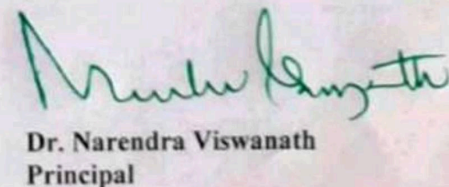 Dr. Narendra Viswanath
Principal